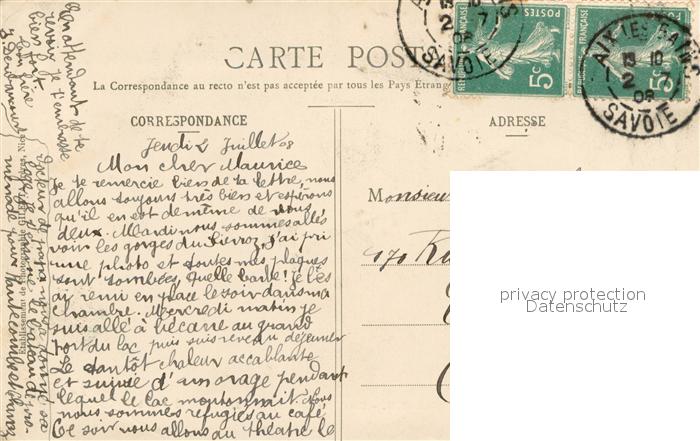 CARTE POSTALE
La Correspondance au recto n'est pas acceptée par tous les Pays Etrang
CORRESPONDANCE
ADRESSE
POSTES
5c
RÉPUBLIQUE FRANÇAISE
POSTES
5c
RÉPUBLIQUE FRANÇAISE
SAVOIE
AIX-LES-BAINS
2 -7
08
SAVOIE
Jeudi 2 Juillet 08
Mon cher Maurice
Je te remercie bien de ta lettre, nous
allons toujours très bien et espérons
qu'il en est de même de vous
deux. Mardi nous sommes allés
voir les gorges du Sierroz, j'ai pri
une photo et toutes mes plaques
sont tombées, quelle barbe! je les
ai remi en place le soir dans ma
chambre. Mercredi matin je
suis allé à bécane au grand
port du lac puis suis revenu déjeuner
tantôt chaleur accablante
et suivie d'un orage pendant
lequel le lac moutonnait. Nous
nous sommes réfugiés au café
Ce soir nous allons au théâtre le
docteur de papa nous a donné sa
loge, je dessine le bateau de pro-
menade pour Hautecombe
En attendant de te
revoir je t'embrasse
bien fort.
ton frère
Monsieur
170 Ru
privacy protection
Datenschutz